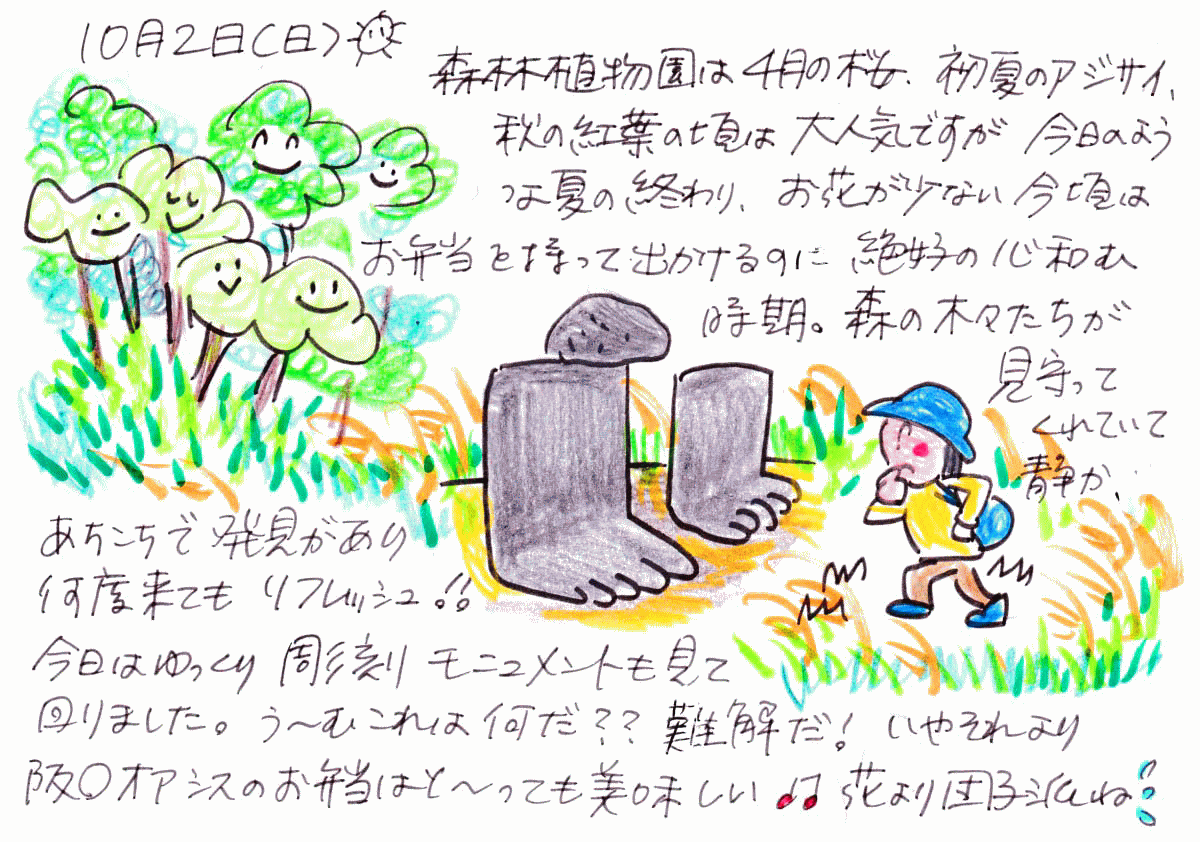 10月2日(日)
森林植物園は4月の桜、初夏のアジサイ、
秋の紅葉の頃は大人気ですが今日のよう
な夏の終わり、お花が少ない今頃は
お弁当を持って出かけるのに絶好の心和む
時期。森の木々たちが
見守って
くれていて
静か、
あちこちで発見があり
何度来てもリフレッシュ!!
今日はゆっくり彫刻モニュメントも見て
回りました。う〜むこれは何だ??難解だ!いやそれより
阪○オアシスのお弁当はと〜っても美味しい♪♫花より団子派ね